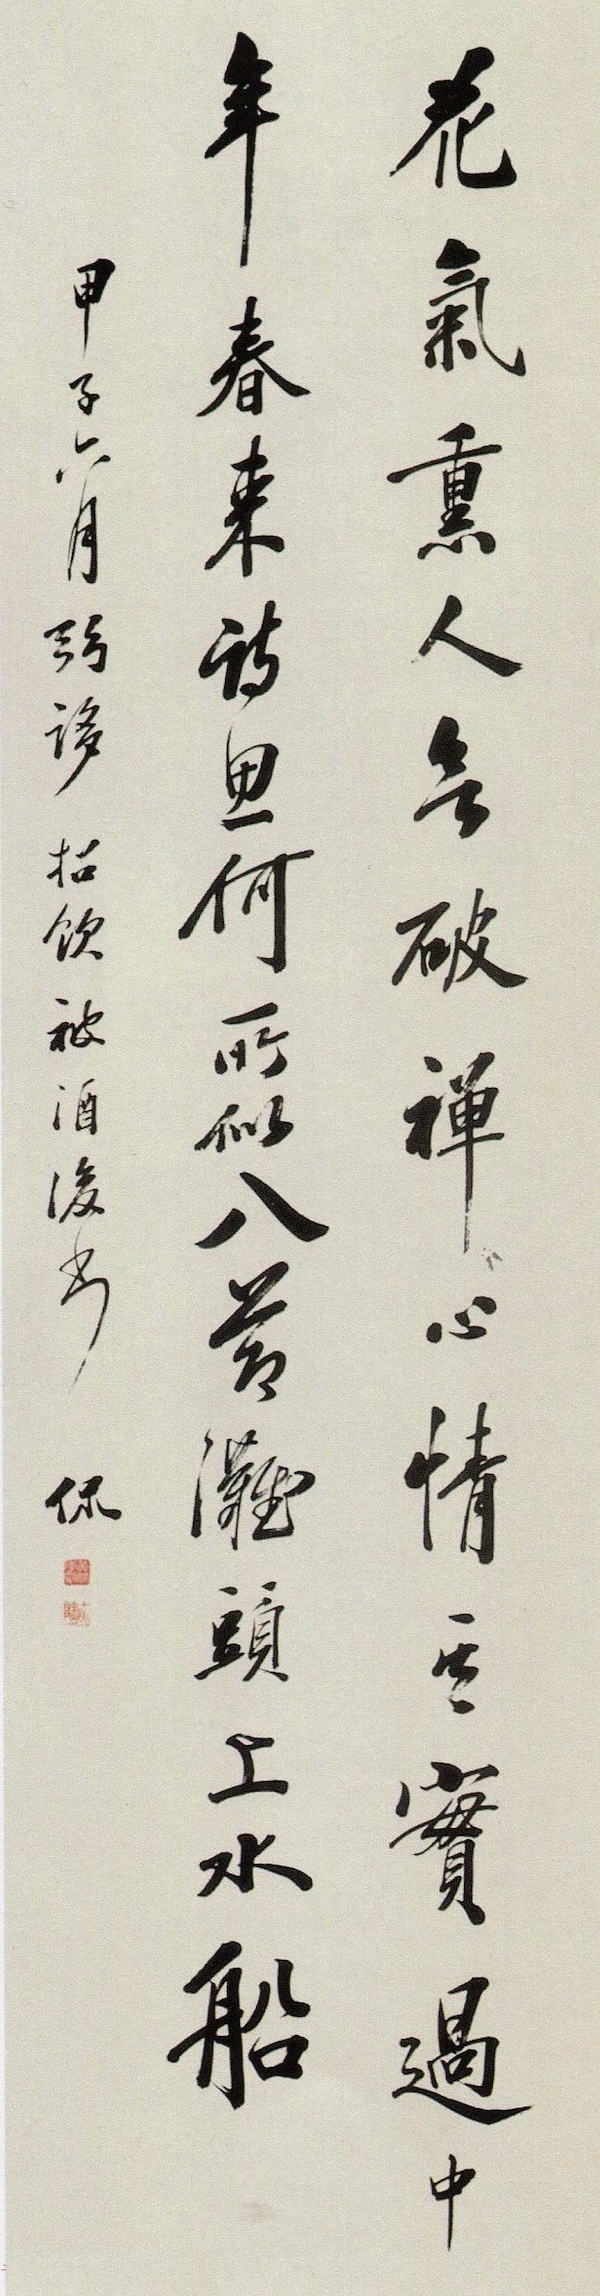 花氣熏人欲破禪心情其實過中
年春来詩思何所似八节灘頭上水船
甲子六月弱誃招飲被酒後书 侃